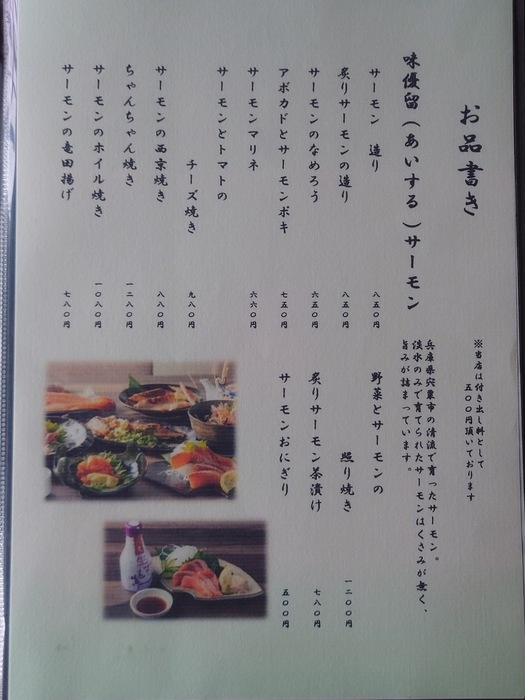 お品書き
※当店は付き出し料として
五〇〇円頂いております
味優留（あいする）サーモン
兵庫県宍粟市の清流で育ったサーモン。
淡水のみで育てられたサーモンはくさみが無く、
旨みが詰まっています。
サーモン 造り 八五〇円
炙りサーモンの造り 八五〇円
サーモンのなめろう 六五〇円
アボカドとサーモンポキ 七五〇円
サーモンマリネ 六六〇円
サーモンとトマトの
チーズ焼き 九八〇円
サーモンの西京焼き 八八〇円
ちゃんちゃん焼き 一二八〇円
サーモンのホイル焼き 一〇八〇円
サーモンの竜田揚げ 七八〇円
野菜とサーモンの
照り焼き 一二〇〇円
炙りサーモン茶漬け 七八〇円
サーモンおにぎり 五〇〇円